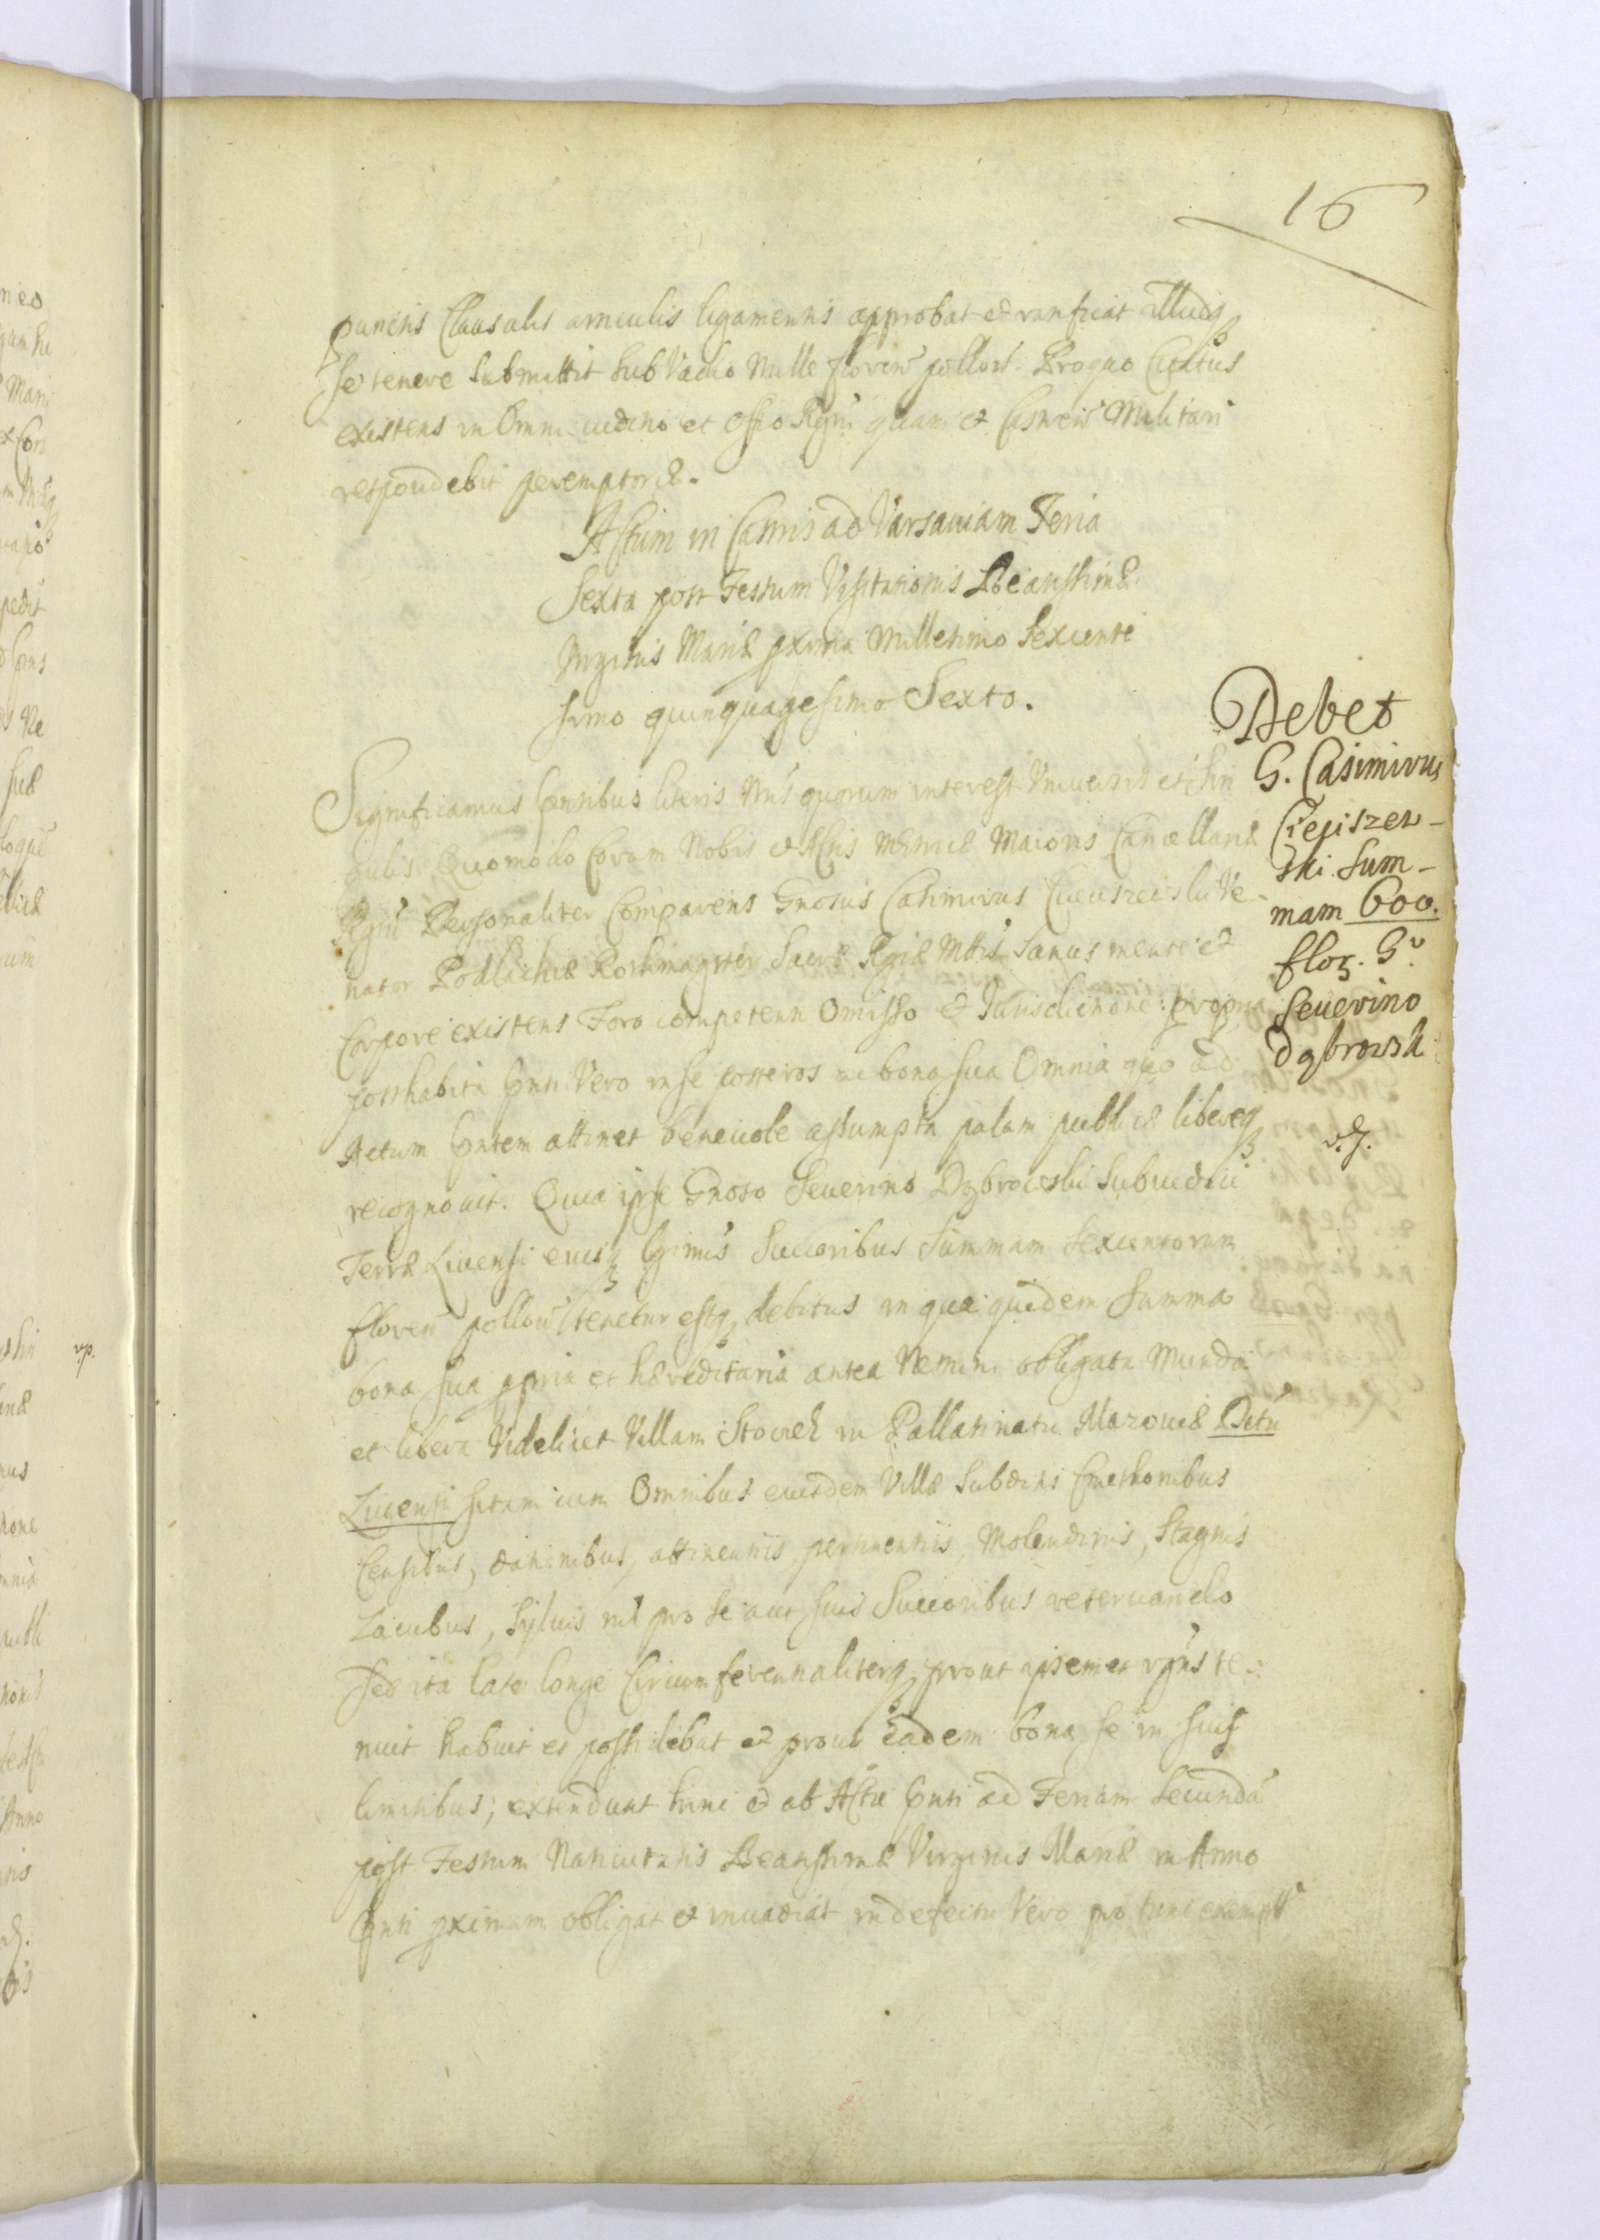 16
punctis Clausulis articulis ligamentis approbat et ratificat illudq
se tenere submittit sub Vadio Mille floren pollon. Pro quo Citatus
existens in Omni iudicio et offo Regni quam et Castren Militari
respondebit peremptorie.
Actum in Castris ad Varsaviam Feria
Sexta post Festum Visitationis Beatissimæ
Virginis Mariæ pxima Millesimo Sexcente
simo quinquagesimo Sexto.
Significamus pntibus literis nris quorum interest Vniuersis et sin
gulis Quomodo Coram Nobis et Actis Metricæ Maioris Cancellariæ
Regni Personaliter Comparens Gnosus Casimirus Cieciszewski Ve-
nator Podlachiæ Rothmagister Sacræ Regiæ Mttis Sanus mente et
Corpore existens Foro competenti Omisso et Iurisdictione propria
posthabita pnti Vero in se posteros ac bona sua Omnia quo ad
Actum pntem attinet beneuole assumpta palam publice libereq
recognouit. Quia ipse Gnoso Seuerino Dąbrowski Subiudici
Terræ Liuensi eiusq Lgimis Succoribus Summam Sexcentorum
floren pollon tenetur estq debitus in qua quidem Summa
bona sua ppria et hæreditaria antea Nemini obligata Munda
et libera Videlicet Villam Stoczek in Pallatinatu Mazouiæ Dctu
Liuensi sitam cum Omnibus eiusdem Villæ Subditis Cmethonibus
Censibus, dationibus, attinentiis, pertinentiis, Molendinis, Stagnis
Lacubus, Syluis nil pro se aut suis Succoribus reseruando
sed ita late longe Circumferentialiterq prout ipsemet rgns te-
nuit habuit et possidebat et prout eadem bona se in suis
limitibus; extendunt hinc et ab Actu pnti ad Feriam Secunda
post Festum Natiuitatis Beatissimæ Virginis Mariæ in Anno
pnti pximam obligat et inuadiat in defectu Vero pro tunc exempt
Debet
G. Casimirus
Cieciszew-
ski Sum-
mam 600.
flor. Go
Seuerino
Dąbrowsk
v.p.